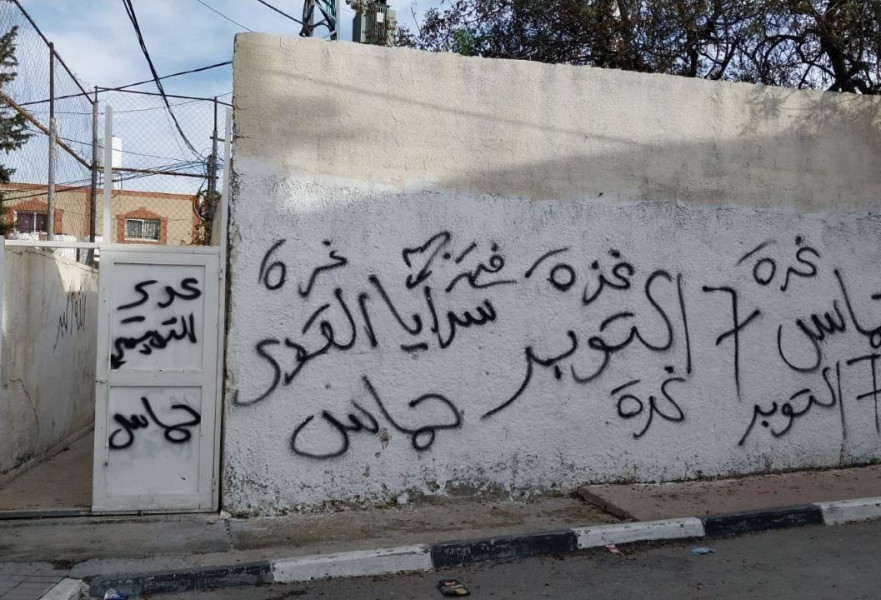 عدي
التميمي
حماس
غزة
غزة
غزة
سرايا القدس
7 اكتوبر
حماس
حماس
غزة
7 اكتوبر